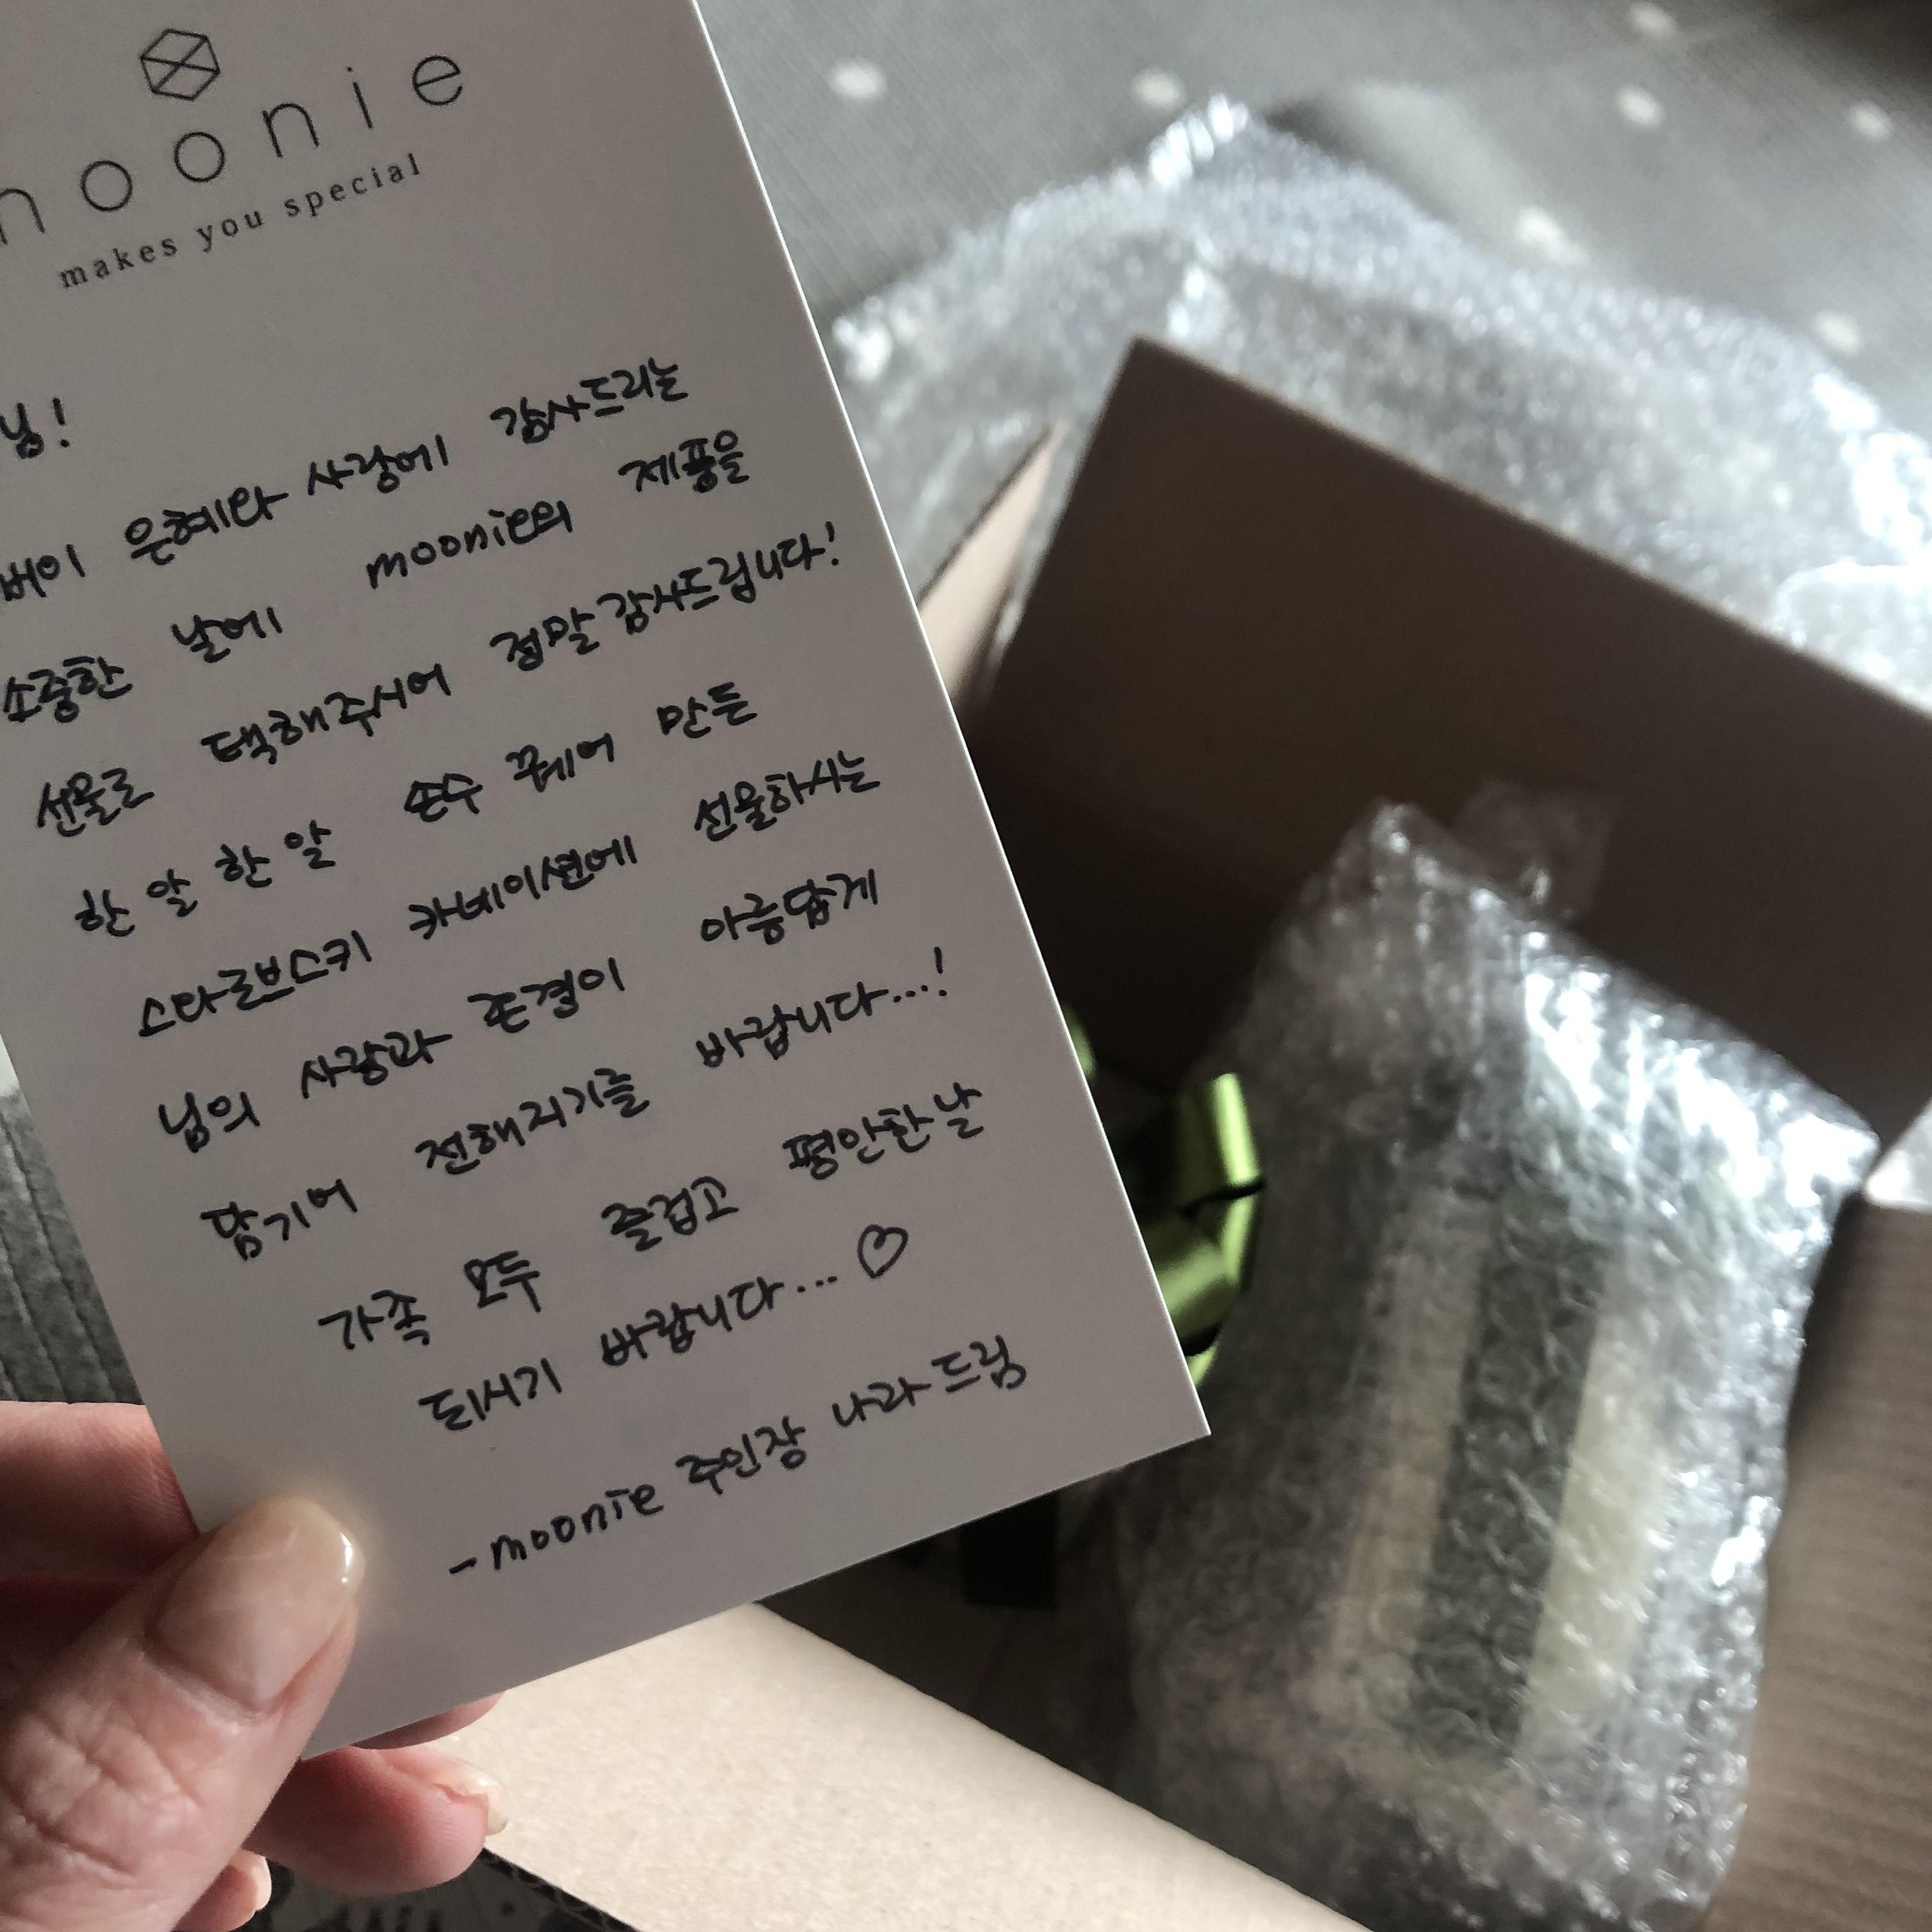 moonie
makes you special
님!
버이 은혜와 사랑에 감사드리는
소중한 날에 moonie의 제품을
선물로 택해주시어 정말 감사드립니다!
한 알 한 알 손수 꿰어 만든
스타로브스키 카네이션에 선물하시는
님의 사랑과 존경이 아름답게
담기어 전해지기를 바랍니다...!
가족 모두 즐겁고 평안한 날
되시기 바랍니다... ♡
- moonie 주인장 나라 드림